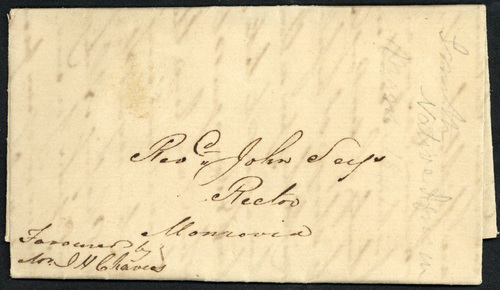 Revd. John Seys
Rector
Monrovia
Favoured by
Mr. J H Chavers